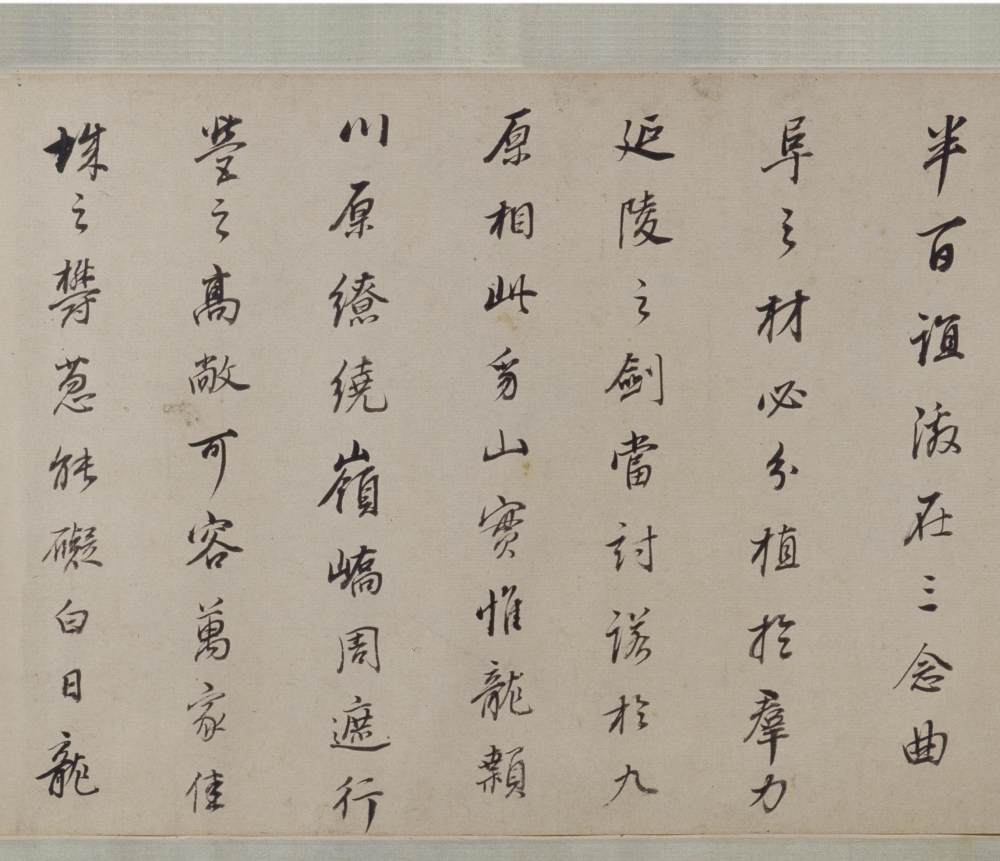 半百誼激在三念曲
阜之材必分植於羣力
延陵之劍當討諾於九
原相此芳山實惟龍顙
川原繚繞嶺嶠周遮行
塋之高敞可容萬家佳
城之鬱葱能礙白日龍